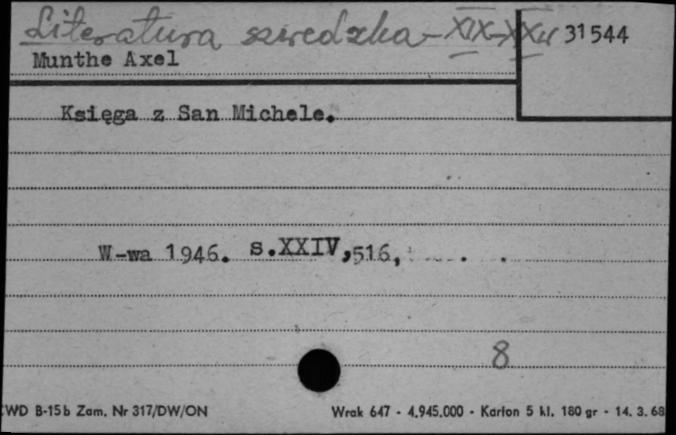 Literatura szwedzka - XIX-XXw
31544
Munthe Axel
Księga z San Michele.
W-wa 1946. s.XXIV,516,
8
WD B-15b Zam. Nr 317/DW/ON Wrak 647 - 4.945.000 - Karton 5 kl. 180 gr - 14. 3. 68